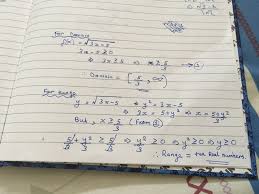 For Domain
f(x) = √3x-5
3x-5 ≥ 0
⇒ 3x ≥ 5 ⇒ x ≥ 5/3 → ①
∴ Domain = [5/3, ∞)
For Range
y = √3x-5 ⇒ y² = 3x-5
⇒ 3x = 5+y² ⇒ x = 5+y²/3
But, x ≥ 5/3 (from ①)
⇒ 5/3 + y²/3 ≥ 5/3 ⇒ y²/3 ≥ 0 ⇒ y² ≥ 0 ⇒ y ≥ 0
∴ Range = +ve Real numbers.